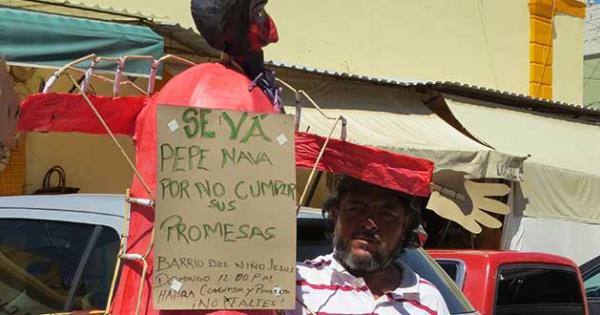 SE VÁ
PEPE NAVA
POR NO CUMPLIR
SUS
PROMESAS
BARRIO DEL NIÑO JESUS
DOMINGO 12:00 P.M
HABRA
¡NO FALTES!